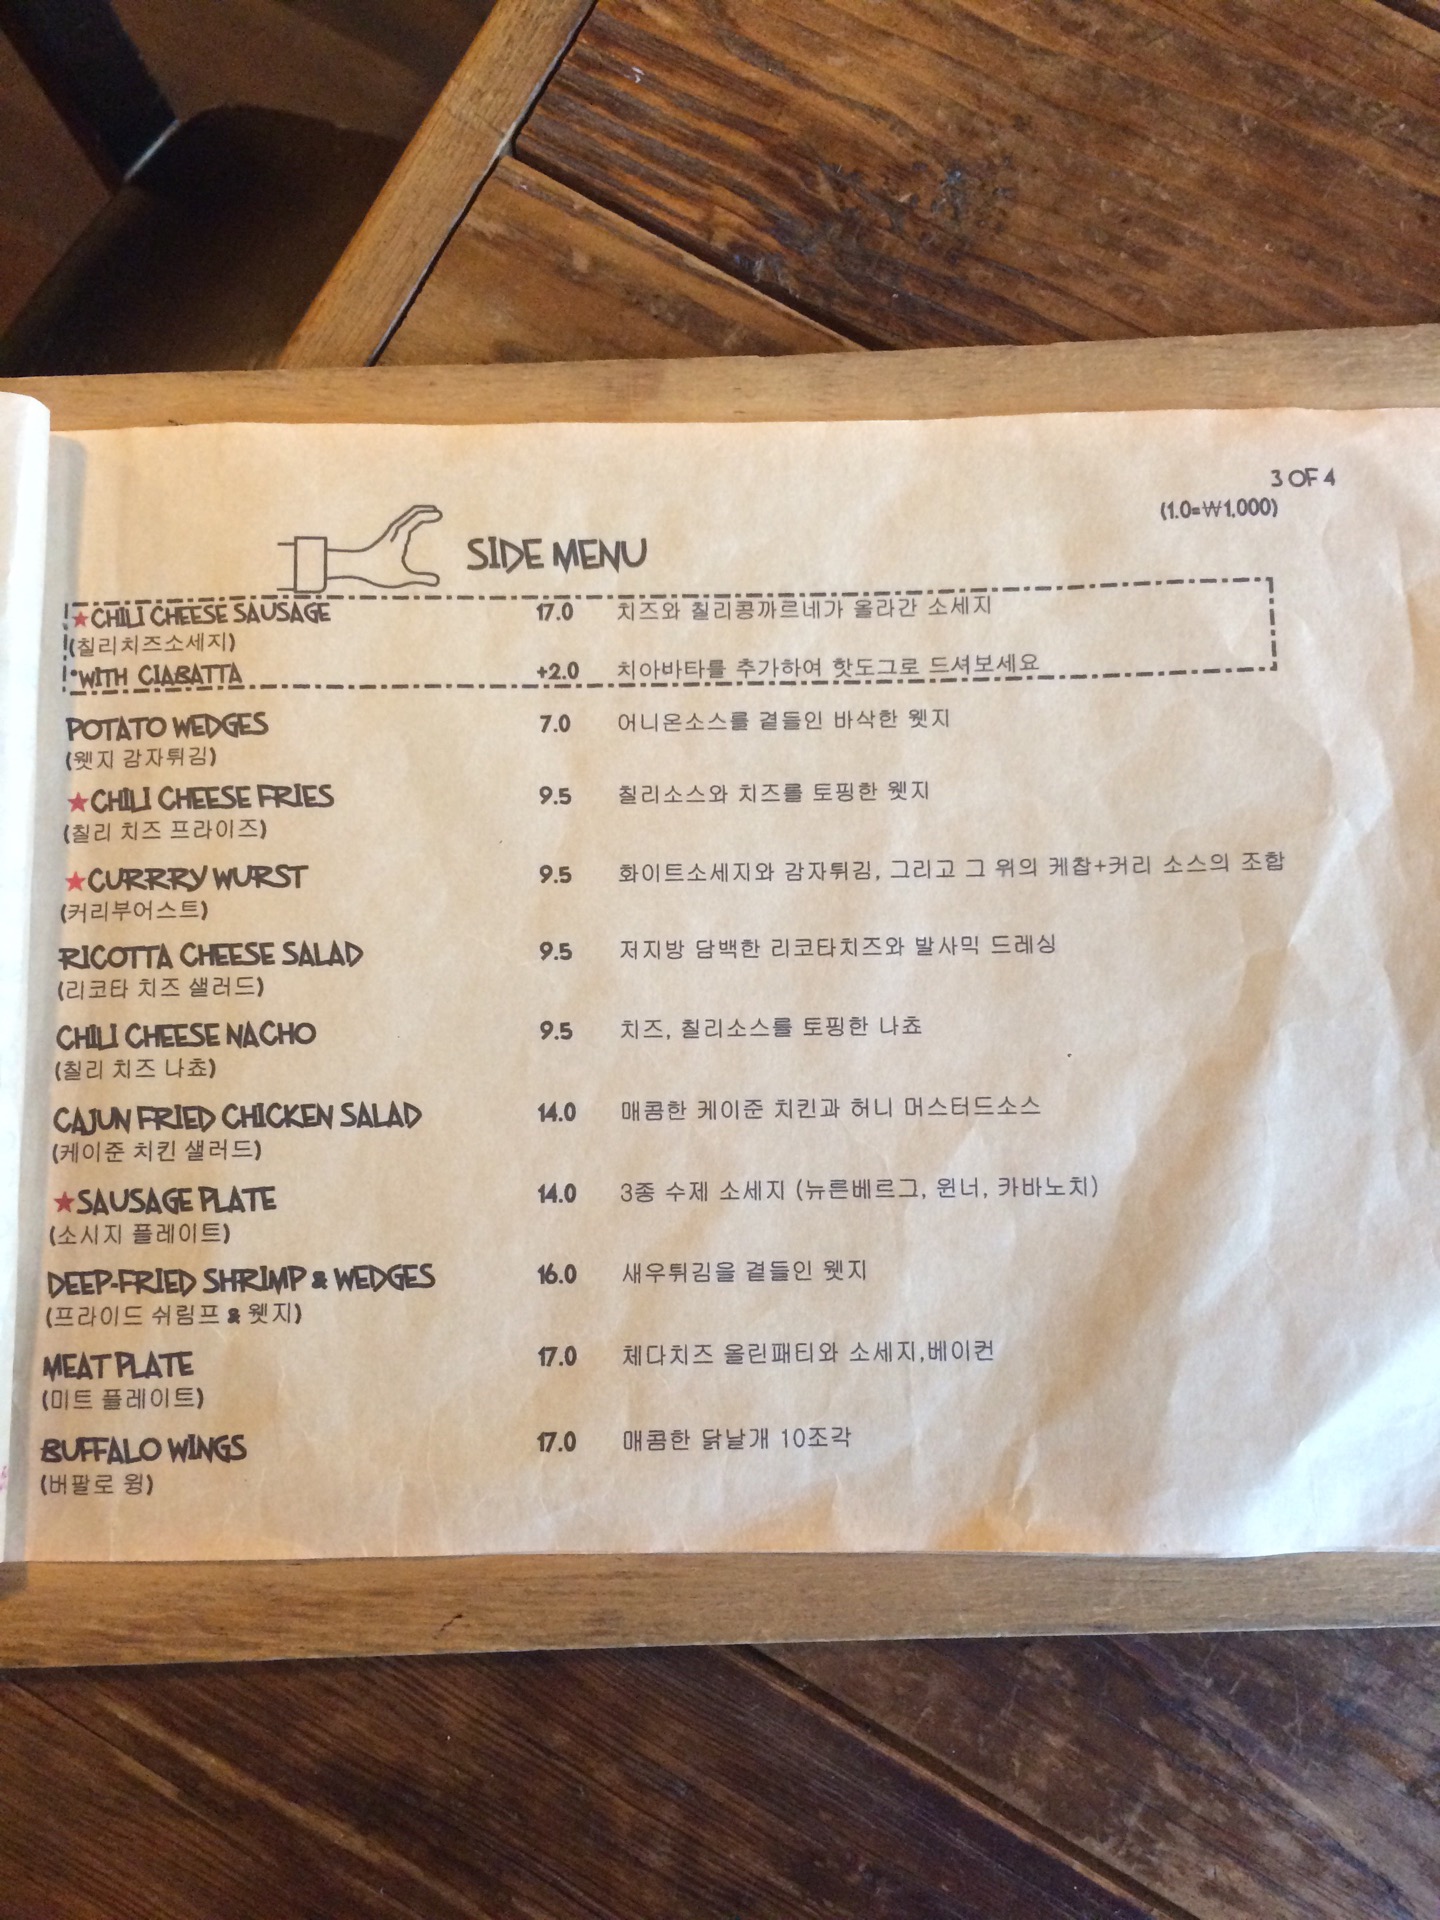 3 OF 4
(1.0=₩1,000)
SIDE MENU
★CHILI CHEESE SAUSAGE 17.0 치즈와 칠리콩까르네가 올라간 소세지
(칠리치즈소세지)
*WITH CIABATTA +2.0 치아바타를 추가하여 핫도그로 드셔보세요
POTATO WEDGES 7.0 어니온소스를 곁들인 바삭한 웻지
(웻지 감자튀김)
★CHILI CHEESE FRIES 9.5 칠리소스와 치즈를 토핑한 웻지
(칠리 치즈 프라이즈)
★CURRRY WURST 9.5 화이트소세지와 감자튀김, 그리고 그 위의 케찹+커리 소스의 조합
(커리부어스트)
RICOTTA CHEESE SALAD 9.5 저지방 담백한 리코타치즈와 발사믹 드레싱
(리코타 치즈 샐러드)
CHILI CHEESE NACHO 9.5 치즈, 칠리소스를 토핑한 나쵸
(칠리 치즈 나쵸)
CAJUN FRIED CHICKEN SALAD 14.0 매콤한 케이준 치킨과 허니 머스터드소스
(케이준 치킨 샐러드)
★SAUSAGE PLATE 14.0 3종 수제 소세지 (뉴른베르그, 윈너, 카바노치)
(소시지 플레이트)
DEEP-FRIED SHRIMP & WEDGES 16.0 새우튀김을 곁들인 웻지
(프라이드 쉬림프 & 웻지)
MEAT PLATE 17.0 체다치즈 올린패티와 소세지,베이컨
(미트 플레이트)
BUFFALO WINGS 17.0 매콤한 닭날개 10조각
(버팔로 윙)